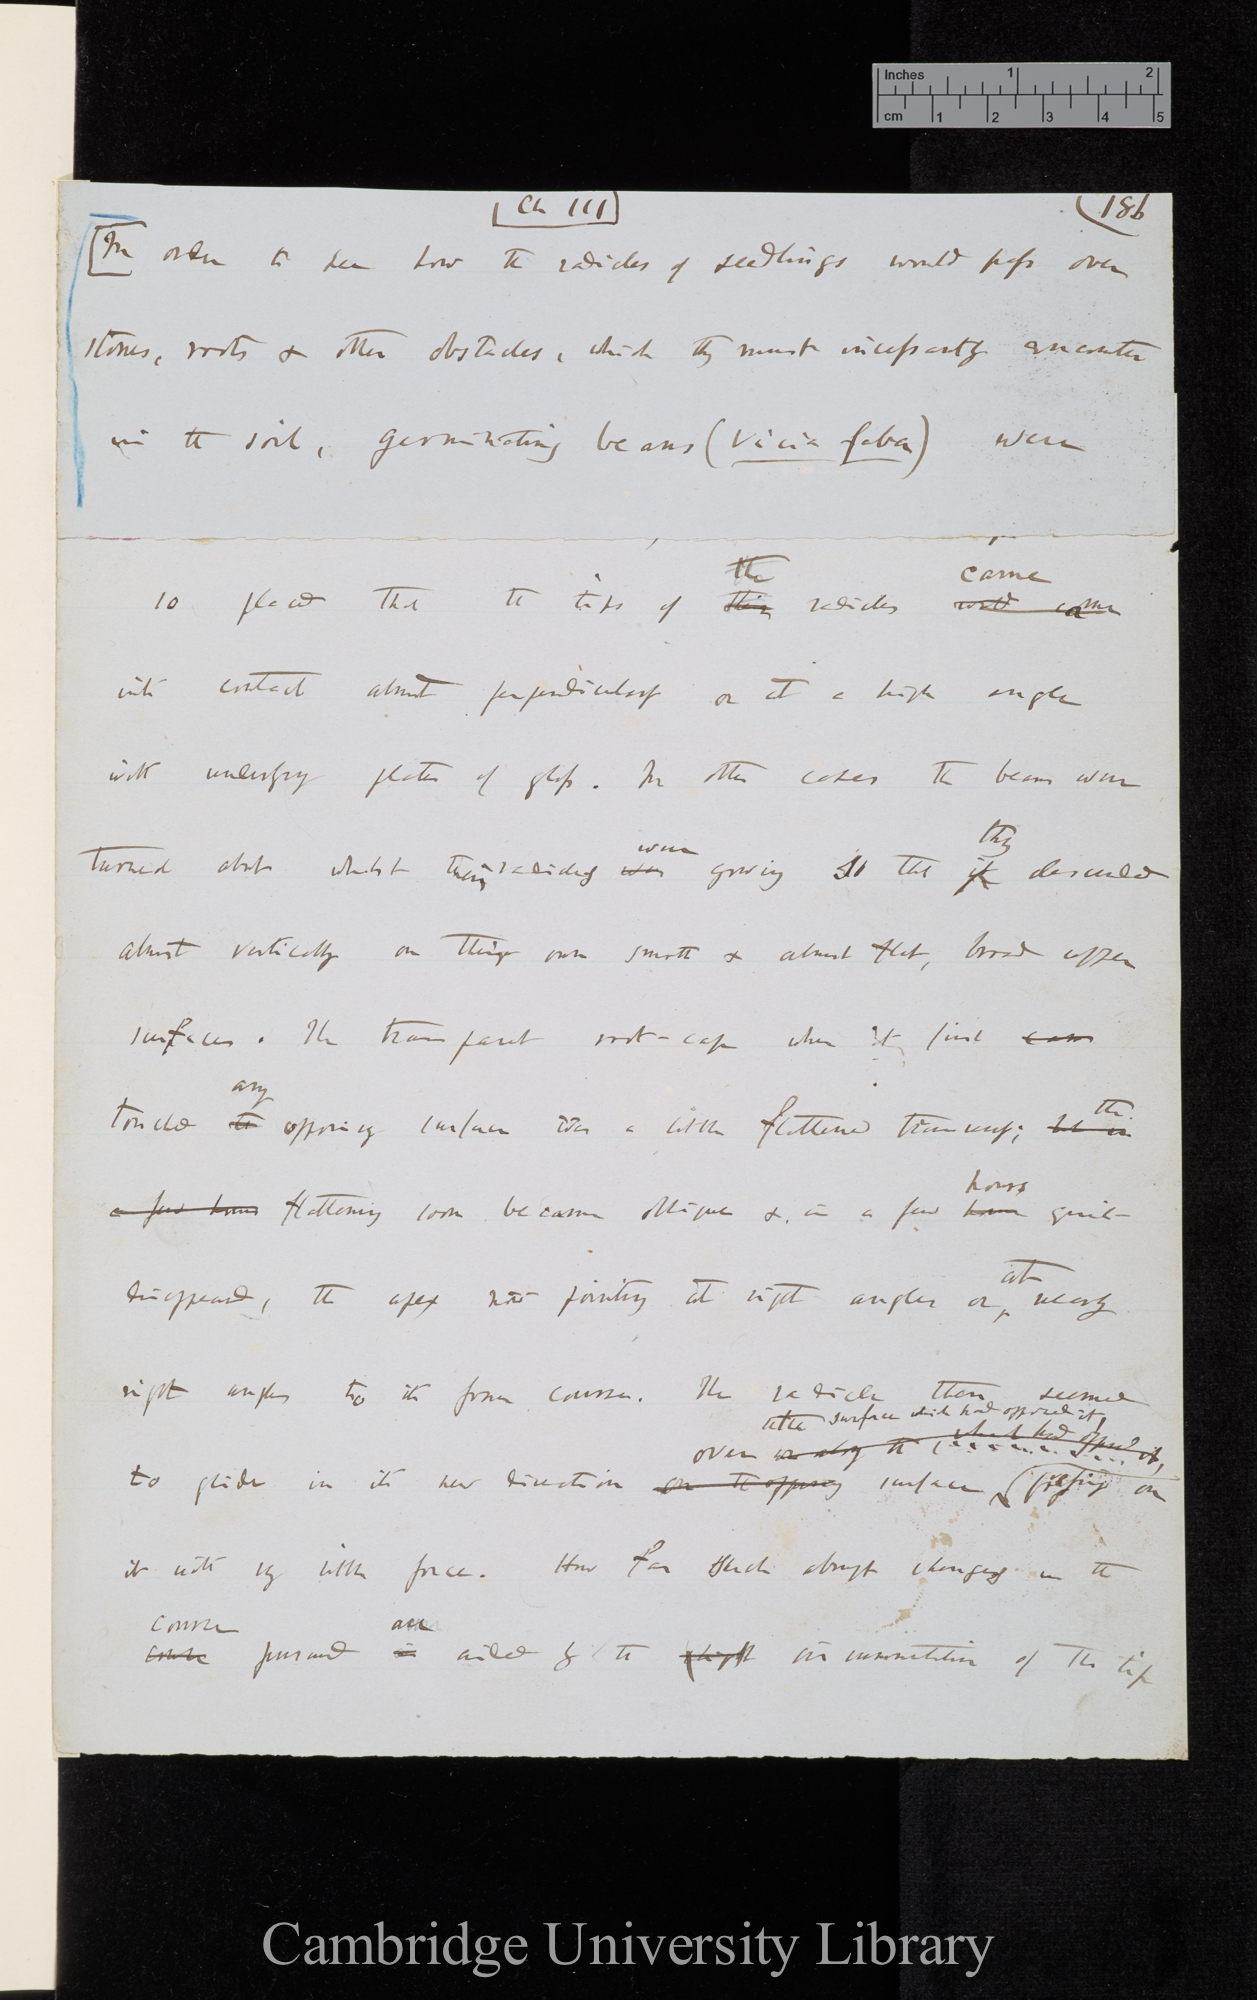 Inches 1 2
cm 1 2 3 4 5
Ch III 186
In order to see how the radicles of seedlings would pass over
stones, roots & other obstacles, which they must incessantly encounter
in the soil, germinating beans (Vicia faba) were
the came
so placed that the tips of their radicles would come
into contact almost perpendicularly or at a high angle
with underlying plates of glass. In other cases the beans were
were they
turned about whilst their radicles was growing so that it descended
almost vertically on their own smooth & almost flat, broad upper
surfaces. The transparent root-cap when it first came
any the
touched the opposing surface was a little flattened transvsly; but in
hours
a few hours flattening soon became oblique & in a few hours quite
at
disappeared, the apex now pointing at right angles or nearly
right angles to its former course. The radicle then seemed
the surface which had opposed it,
over or along the which had opposed it,
to glide in its new direction on the opposing surface pressing on
it with vy little force. How far such abrupt changes in the
course are
course pursued is aided by the slight circumnutation of the tip
Cambridge University Library